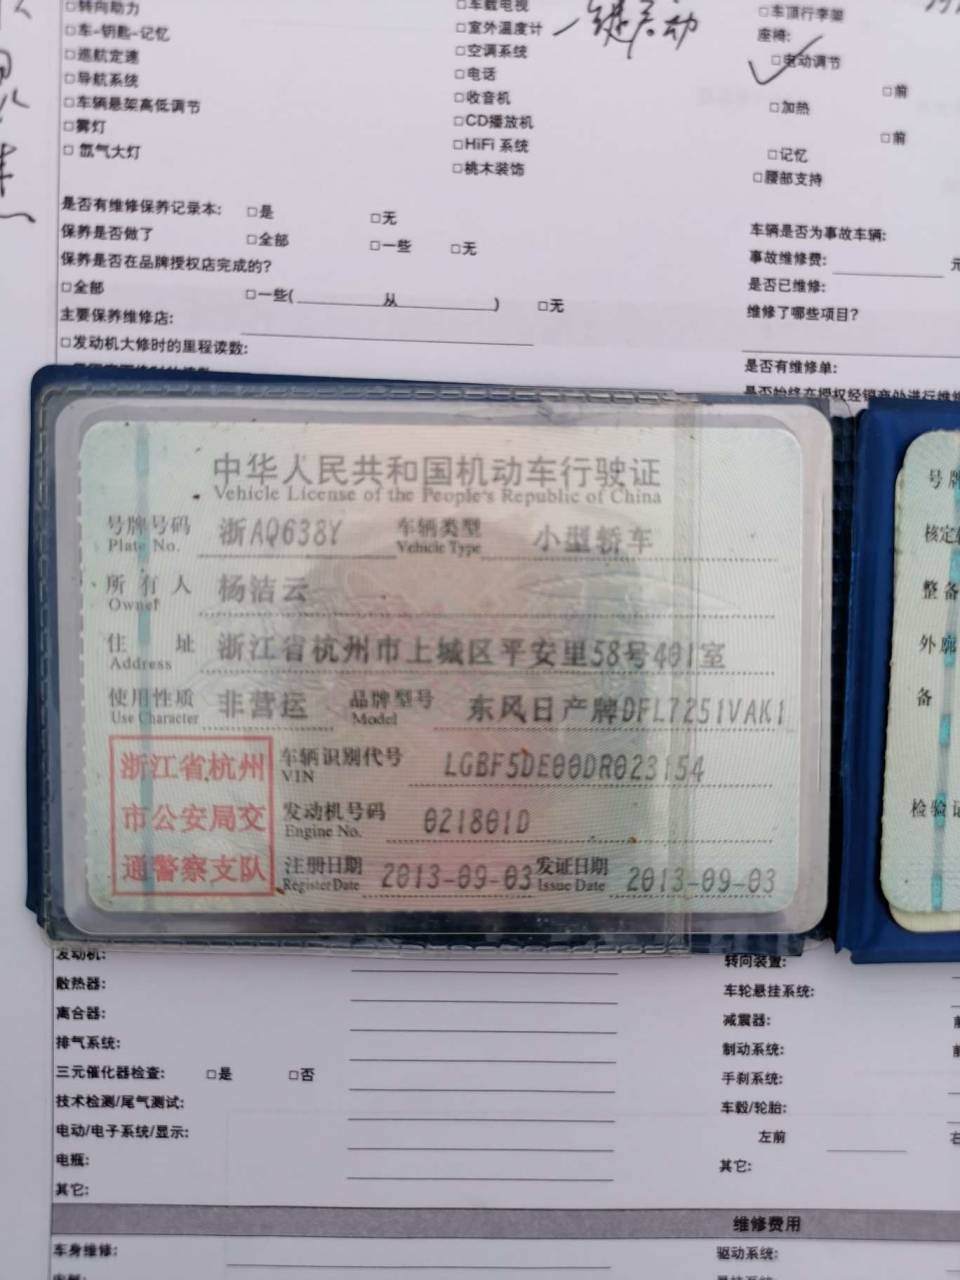 □转向助力
□车-钥匙-记忆
□巡航定速
□导航系统
□车辆悬架高低调节
□雾灯
□氙气大灯
□车载电视
□室外温度计
一键启动
□空调系统
□电话
□收音机
□CD播放机
□HiFi 系统
□桃木装饰
□车顶行李架
座椅:
□电动调节
□前
□加热
□前
□记忆
□腰部支持
是否有维修保养记录本: □是 □无
保养是否做了 □全部 □一些 □无
保养是否在品牌授权店完成的?
□全部 □一些( 从 ) □无
主要保养维修店:
□发动机大修时的里程读数:
车辆是否为事故车辆:
事故维修费: 元
是否已维修:
维修了哪些项目?
是否有维修单:
是否始终在授权经销商处进行维
中华人民共和国机动车行驶证
Vehicle License of the People's Republic of China
号牌号码 浙AQ638Y 车辆类型 小型轿车
Plate No. Vehicle Type
所有人 杨洁云
Owner
住址 浙江省杭州市上城区平安里58号401室
Address
使用性质 非营运 品牌型号 东风日产牌DFL7251VAK1
Use Character Model
浙江省杭州
市公安局交
通警察支队
车辆识别代号 LGBF5DE00DR023154
VIN
发动机号码 021801D
Engine No.
注册日期 2013-09-03 发证日期 2013-09-03
Register Date Issue Date
号牌
核定
整备
外廓
备
检验
发动机:
散热器:
离合器:
排气系统:
三元催化器检查: □是 □否
技术检测/尾气测试:
电动/电子系统/显示:
电瓶:
其它:
转向装置:
车轮悬挂系统:
减震器:
制动系统:
手刹系统:
车毂/轮胎:
左前
其它:
维修费用
车身维修:
驱动系统: